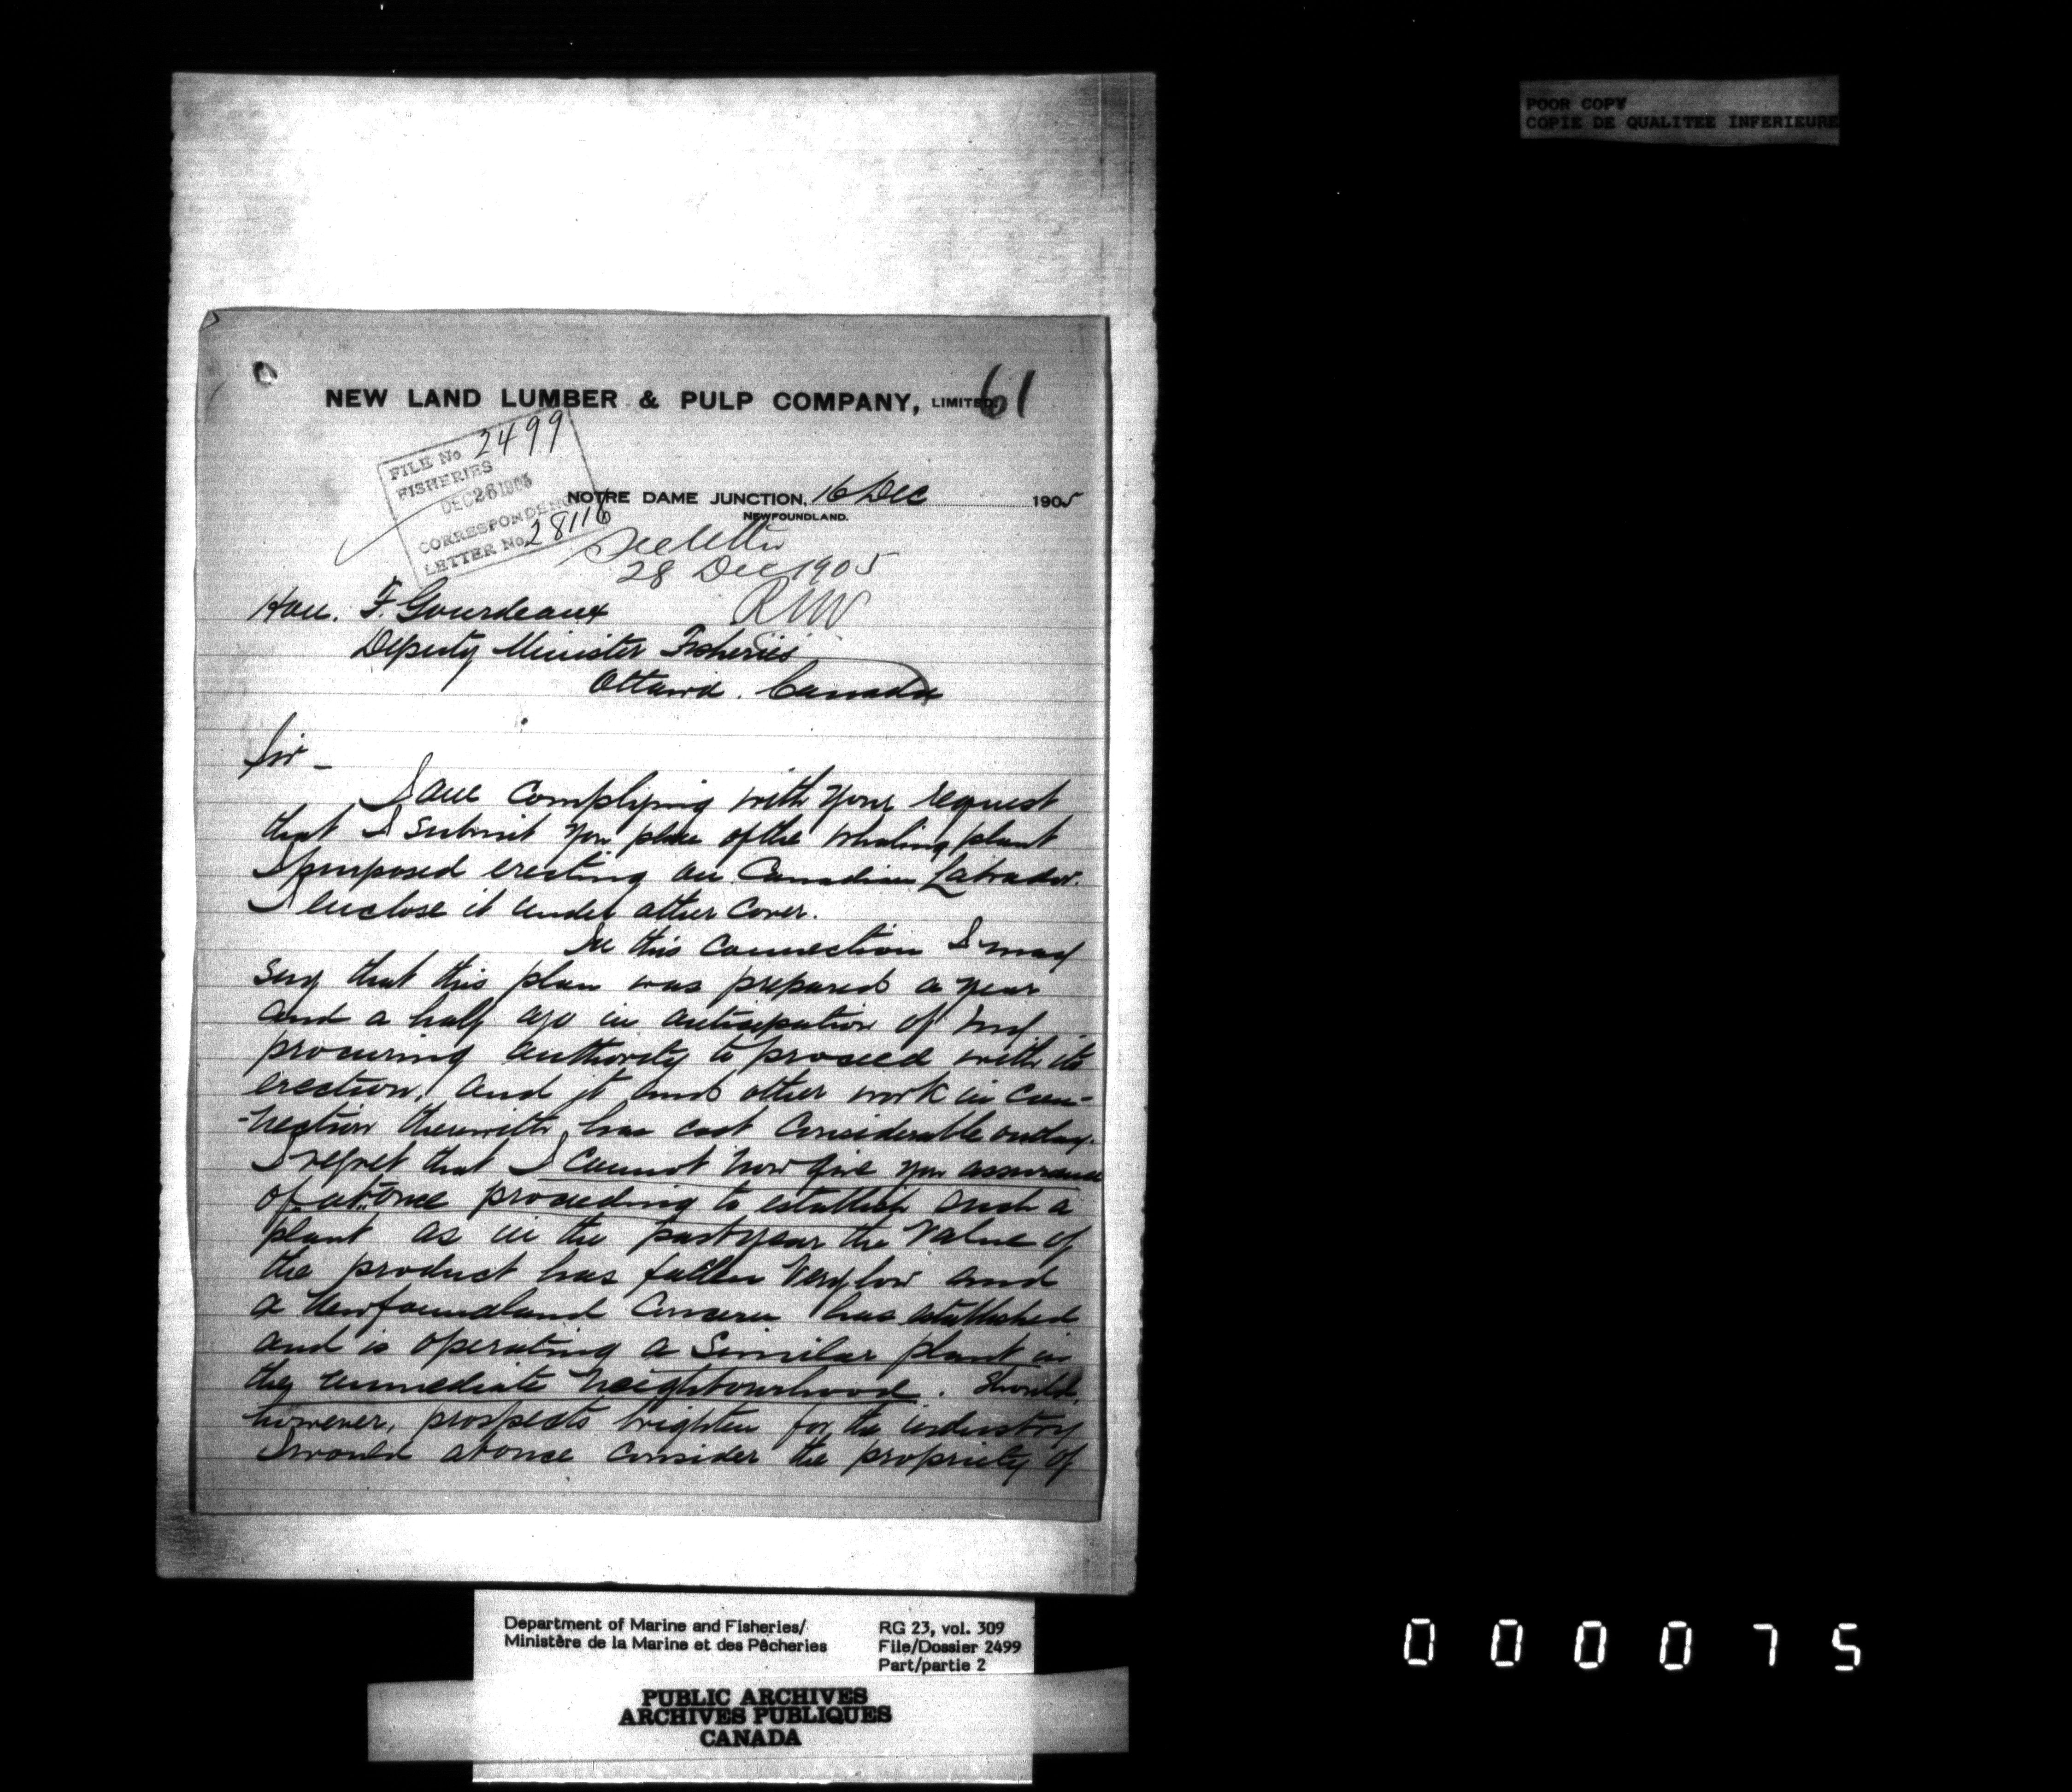 POOR COPY
COPIE DE QUALITEE INFERIEURE
61
NEW LAND LUMBER & PULP COMPANY, LIMITED.
FILE No 2499
FISHERIES
DEC 26 1905
CORRESPONDENCE
LETTER No. 28116
NOTRE DAME JUNCTION, 16 Dec 1905
NEWFOUNDLAND.
See letter
28 Dec 1905
RNV
Hon. F. Gourdeaux
Deputy Minister Fisheries
Ottawa. Canada
Sir –
I am complying with your request
that I submit you plan of the whaling plant
I purposed erecting on Canadian Labrador.
I enclose it under other cover.
In this connection I may
say that this plan was prepared a year
and a half ago in anticipation of my
procuring authority to proceed with its
erection, and it and other work in con-
-nection therewith has cost considerable outlay.
I regret that I cannot now give you assurance
of at once proceeding to establish such a
plant as in the past year the value of
the product has fallen very low and
a Newfoundland concern has established
and is operating a similar plant in
the immediate neighbourhood. Should,
however, prospects brighten for the industry
I would at once consider the propriety of
Department of Marine and Fisheries/
Ministère de la Marine et des Pêcheries
RG 23, vol. 309
File/Dossier 2499
Part/partie 2
PUBLIC ARCHIVES
ARCHIVES PUBLIQUES
CANADA
000075